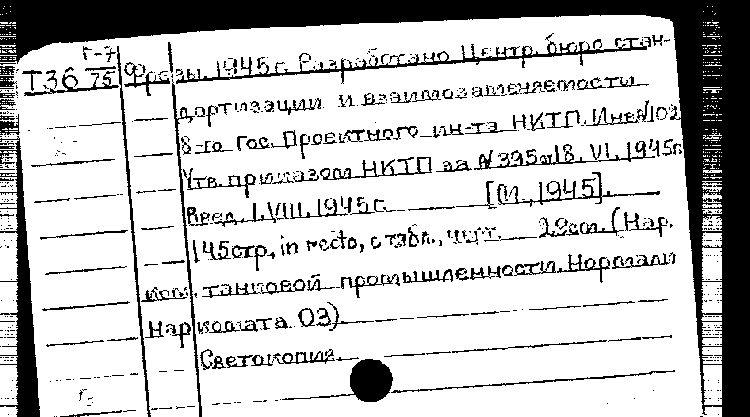 Г-7
Т36 75 Фрезы. 1945 г. Разработано Центр. бюро стан-
дартизации и взаимозаменяемости
8-го Гос. Проектного ин-та НКТП. Инв. №102
Утв. приказом НКТП за №395 от 18. VI. 1945г.
Введ. 1. VIII. 1945 г. [М., 1945].
145стр, in recto, с табл., черт. 29см. (Нар.
ком. танковой промышленности. Нормали
Наркомата 03).
Светокопия.